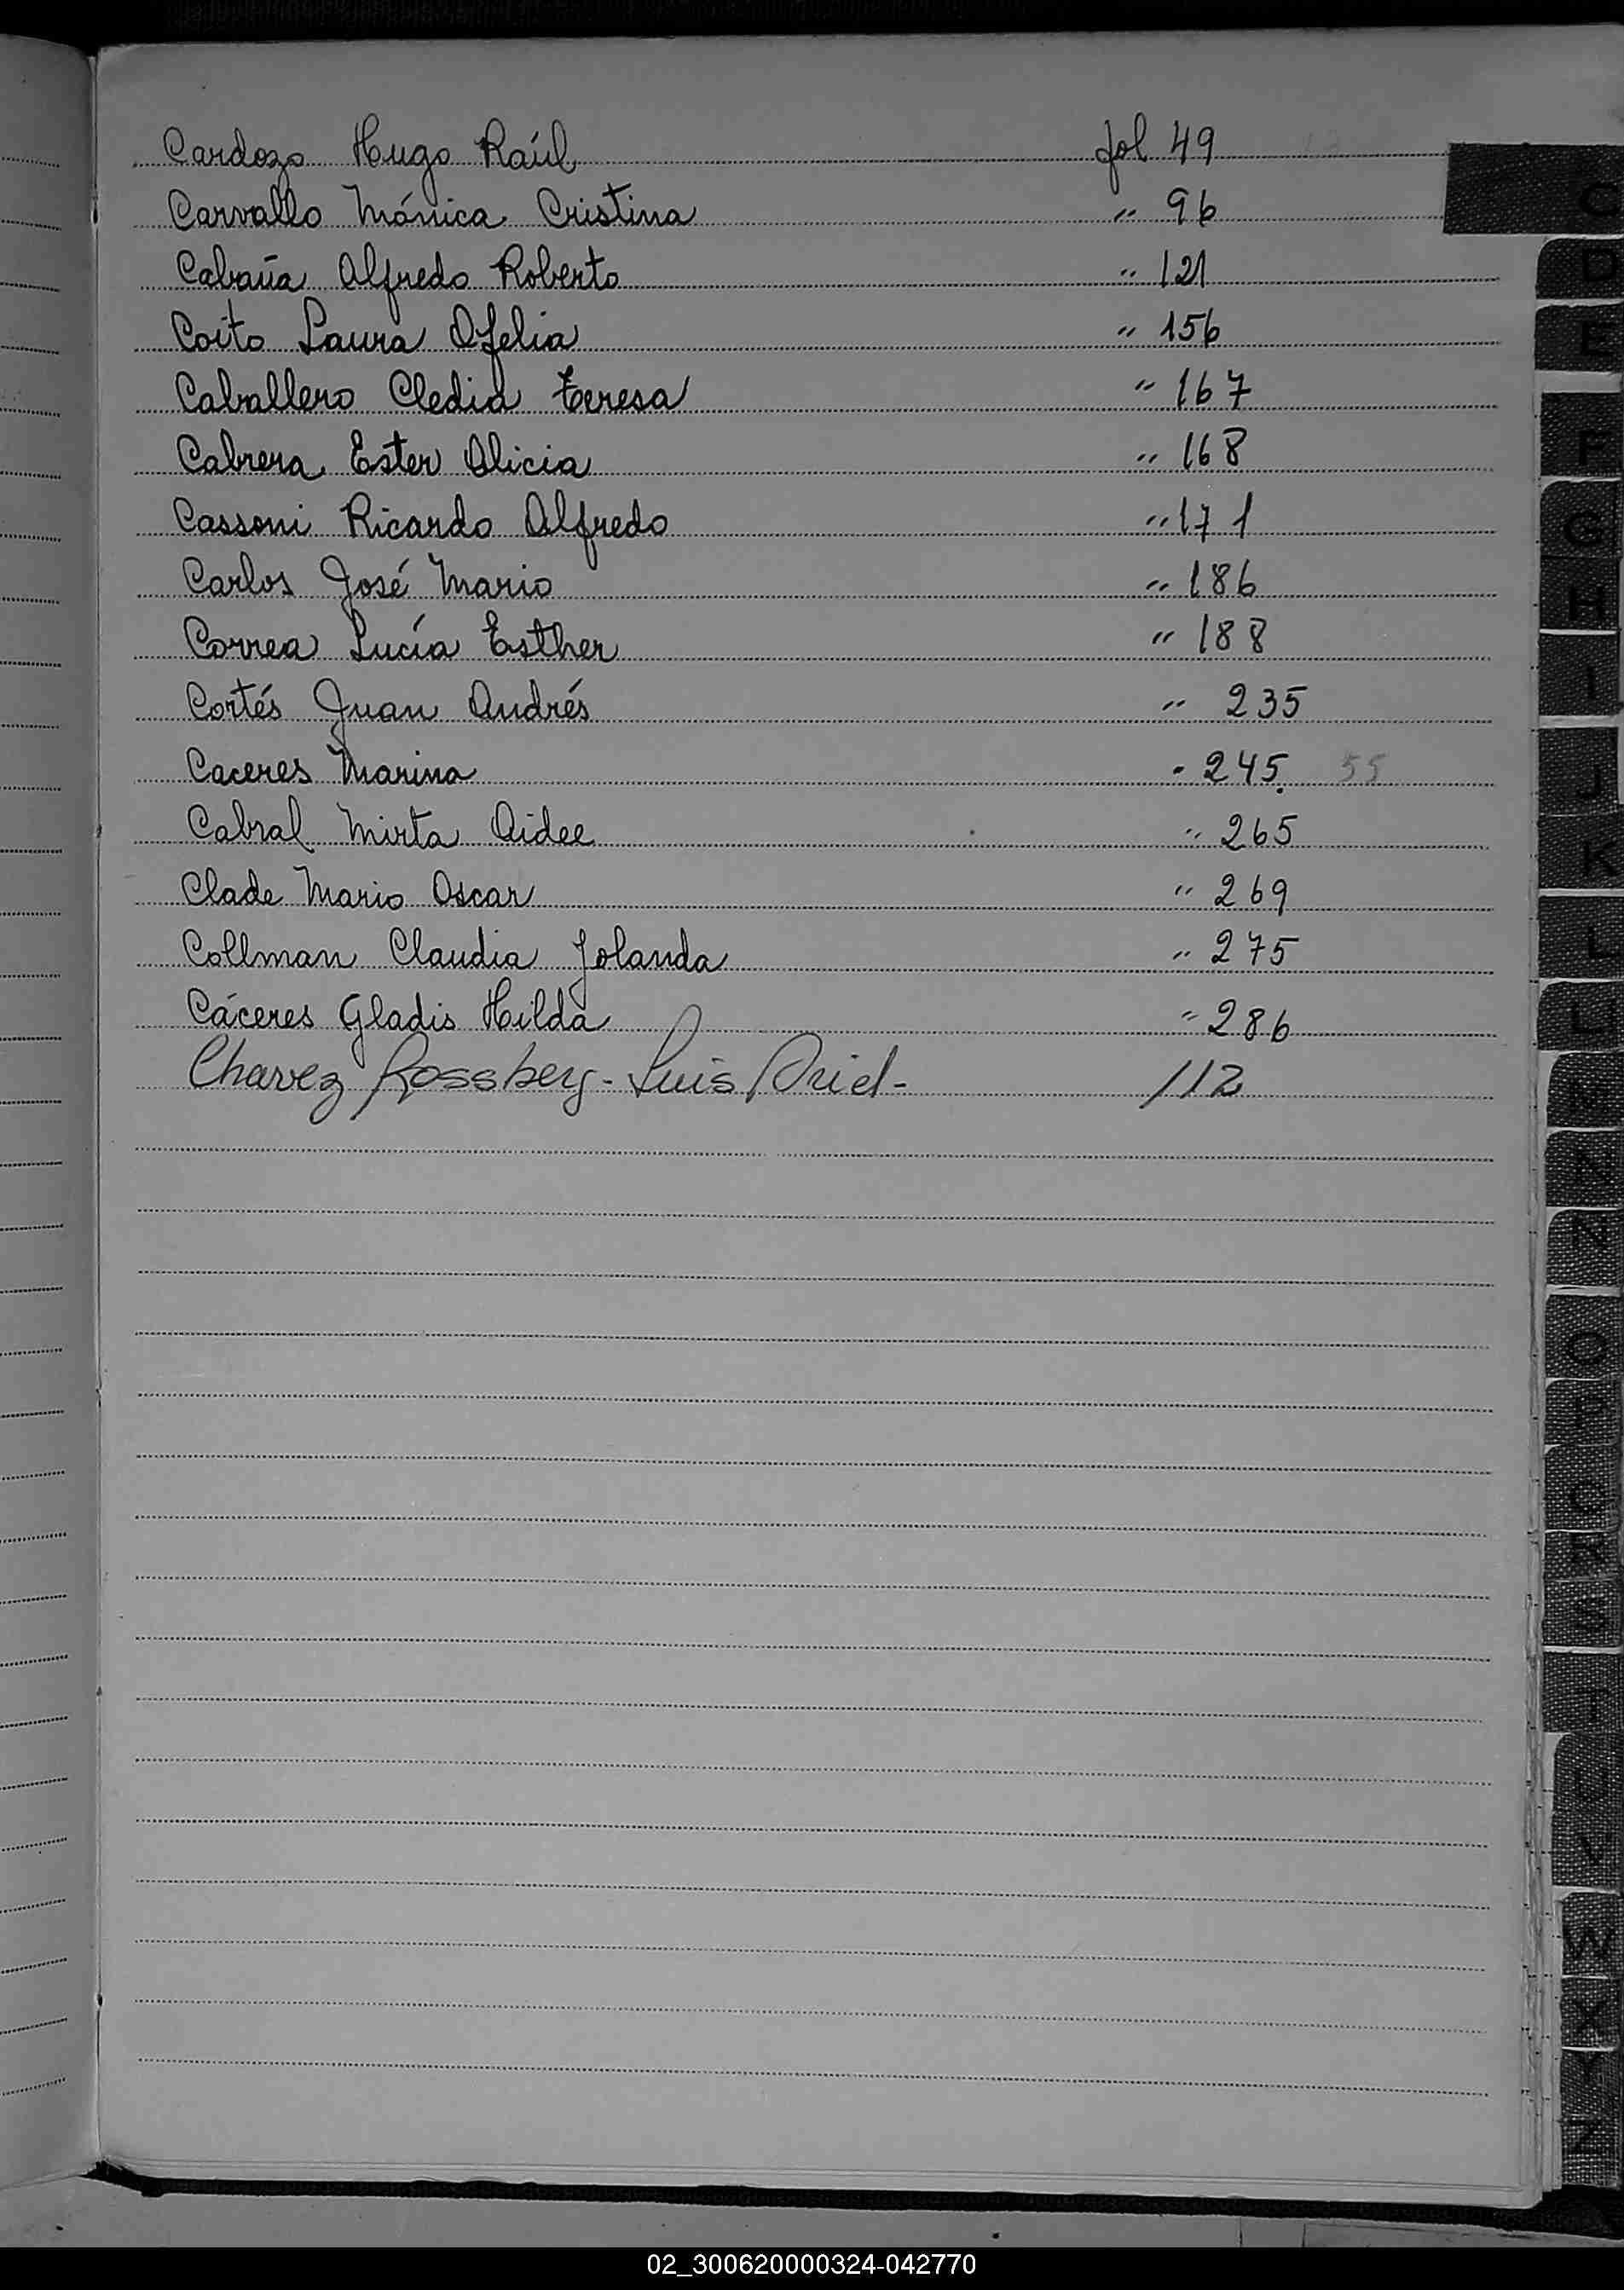 Cardozo Hugo Raúl fol 49
Carvallo Mónica Cristina " 96
Cabaña Alfredo Roberto " 121
Coito Laura Ofelia " 156
Caballero Cledia Teresa " 167
Cabrera Ester Alicia " 168
Cassoni Ricardo Alfredo " 171
Carlos José Mario " 186
Correa Lucía Esther " 188
Cortés Juan Andrés " 235
Caceres Marina " 245 55
Cabral Mirta Aidee " 265
Clade Mario Oscar " 269
Collman Claudia Jolanda " 275
Cáceres Gladis Hilda " 286
Chavez Luis 112
C
D
E
F
G
H
I
J
K
L
LL
M
N
Ñ
O
P
Q
R
S
T
U
V
W
X
Y
Z
02_300620000324-042770